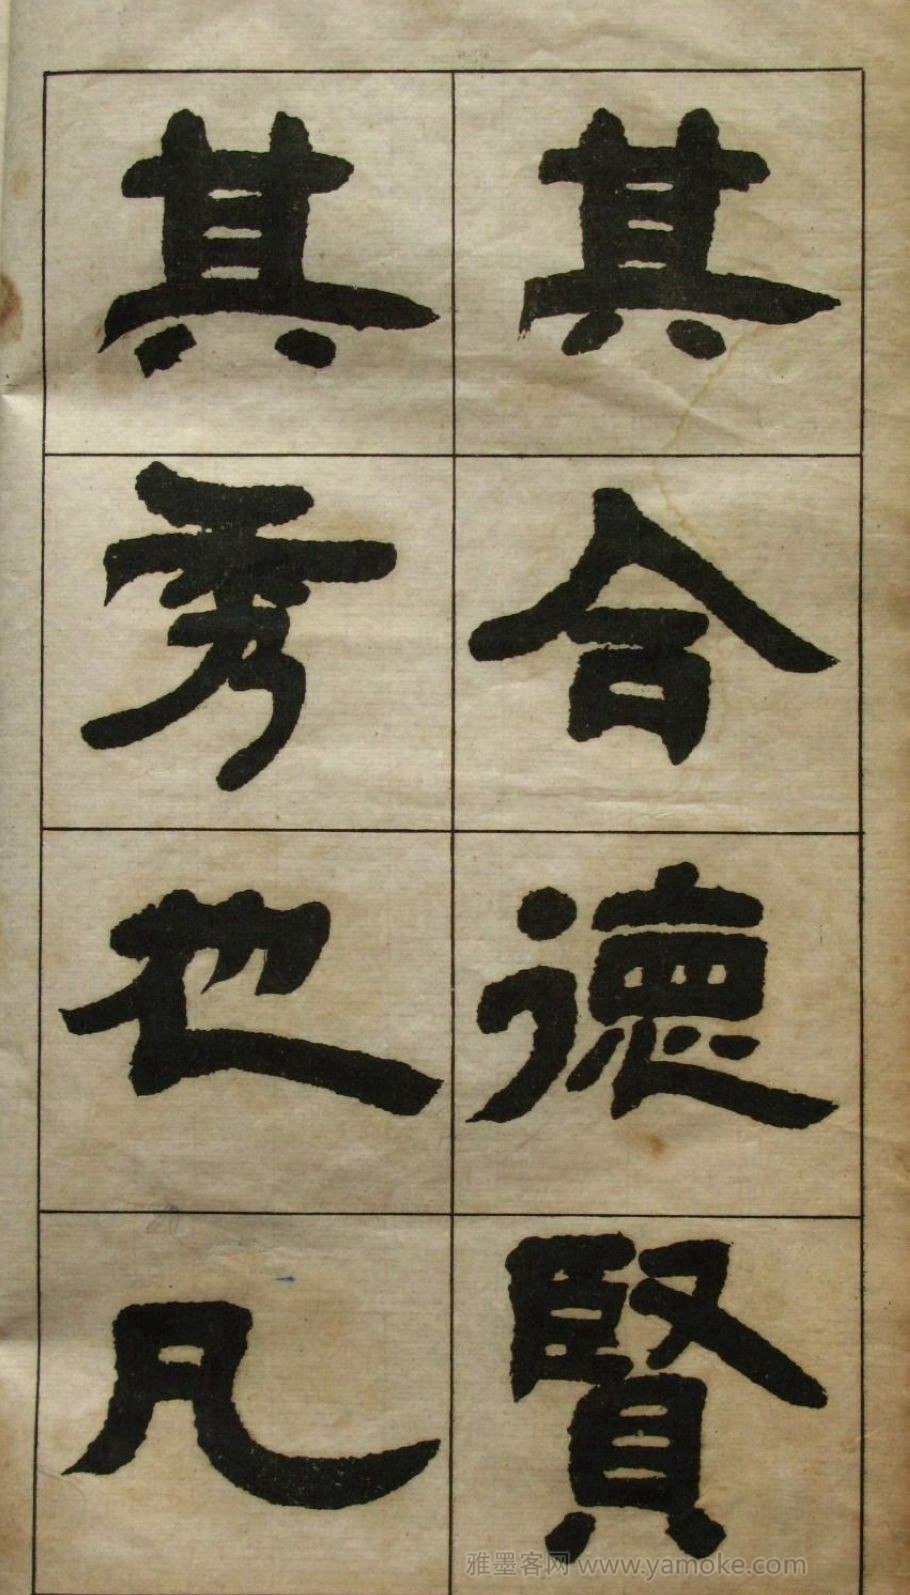 其合德賢
其秀也凡
雅墨客网 www.yamoke.com